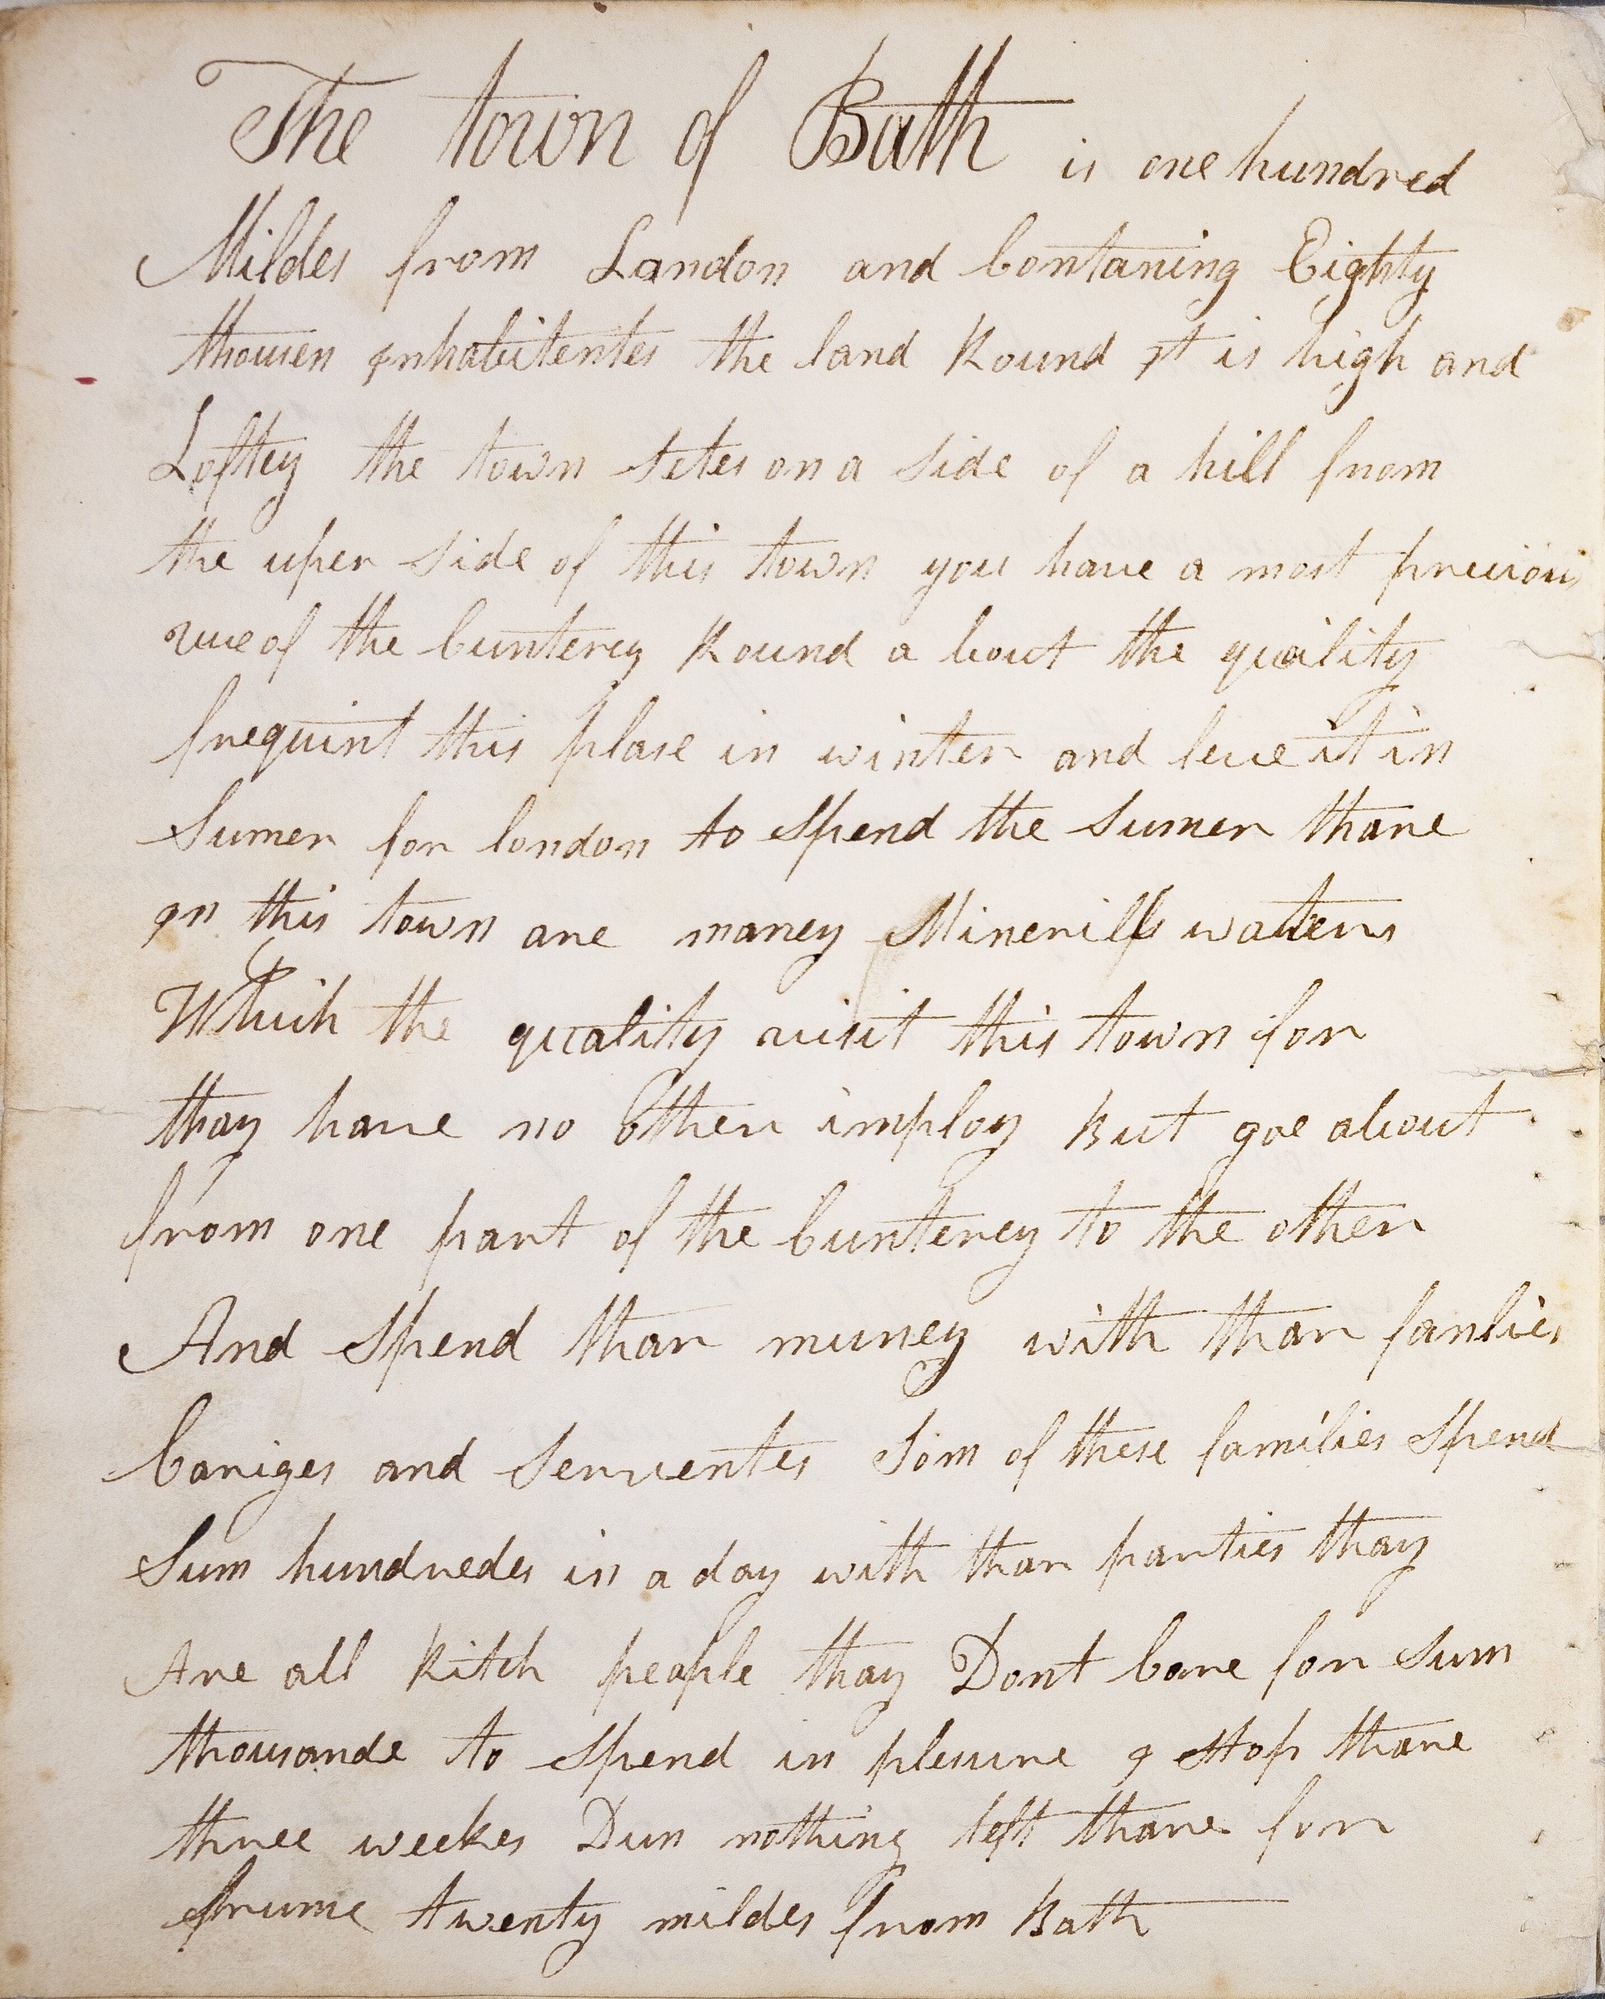 The town of Bath is one hundred
Mildes from Landon and Contaning Eighty
thousen Inhabitentes the land Round It is high and
Loftey the town setes on a side of a hill from
the uper side of this town you have a most precious
vue of the Cunterey Round a bout the quality
frequint this plase in winter and leve it in
Sumer for london to Spend the Sumer thare
In this town are maney Minerills waters
Which the quality visit this town for
thay have no Other imploy But goe about
from one part of the Cunterey to the other
And Spend thar muney with thar famlies
Cariges and Serventes Som of these families Spend
Sum hundredes in a day with thar parties thay
Are all Ritch people thay Dont Care for Sum
thousande to Spend in plesure I Stop thare
three weekes Dun nothing left thare for
frume twenty mildes from Bath